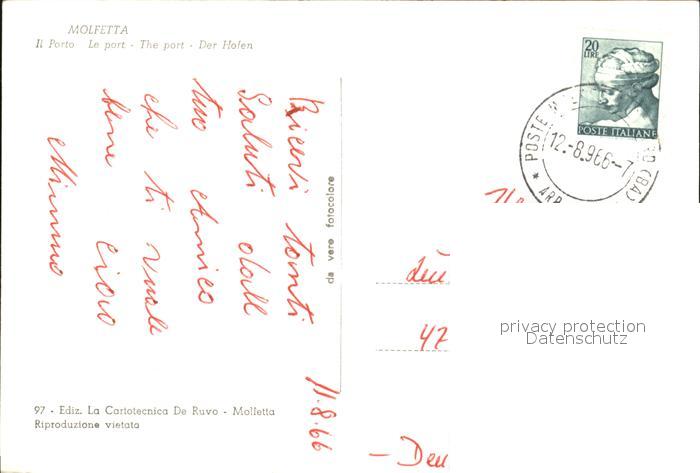 MOLFETTA
Il Porto Le port - The port - Der Hofen
20
LIRE
POSTE ITALIANE
POSTE
12.-8.966-7
(BA)
ARR
Ricevi tanti
Saluti dall
tuo Amico
che ti vuole
bene ciao
Mimmo
11-8-66
da vere fotocolore
47
- Deu
privacy protection
Datenschutz
97 - Ediz. La Cartotecnica De Ruvo - Molfetta
Riproduzione vietata